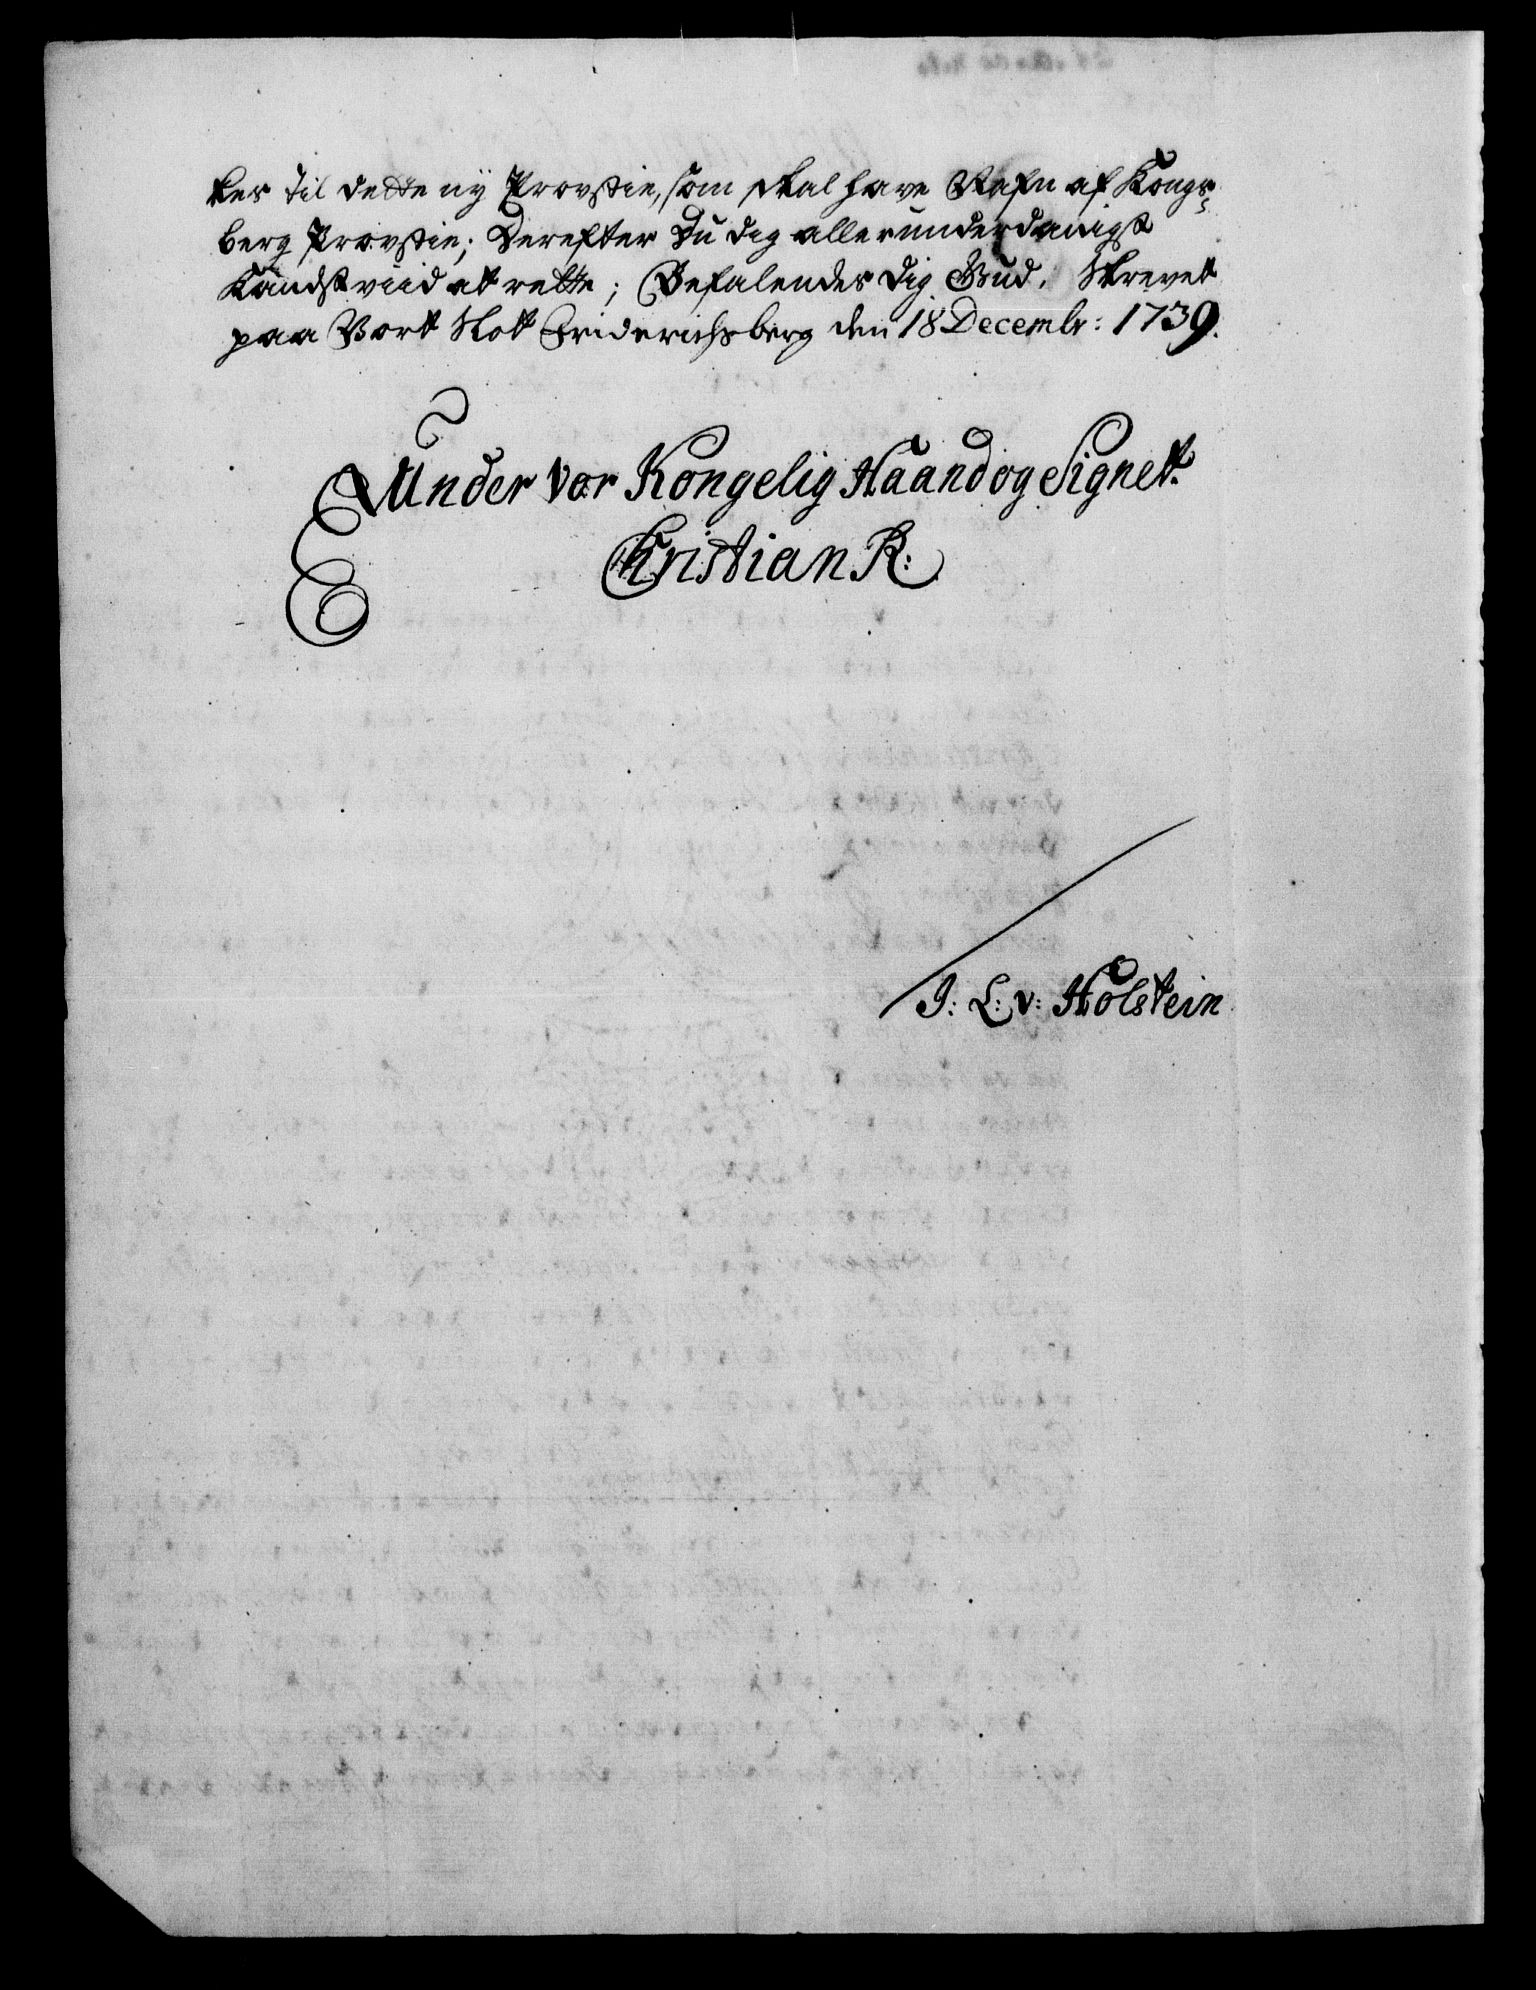 ker til dette ny Provstie, som skal have Nafn af Kongs-
berg Provstie; Derefter Du dig allerunderdanigst
Kandst viid at rette; Befalendes dig Gud. Skrevet
paa Vort Slot Friderichsberg den 18 Decembr: 1739.
Under Vor Kongelig Haand og Signet.
Christian R:
J: L: v: Holstein